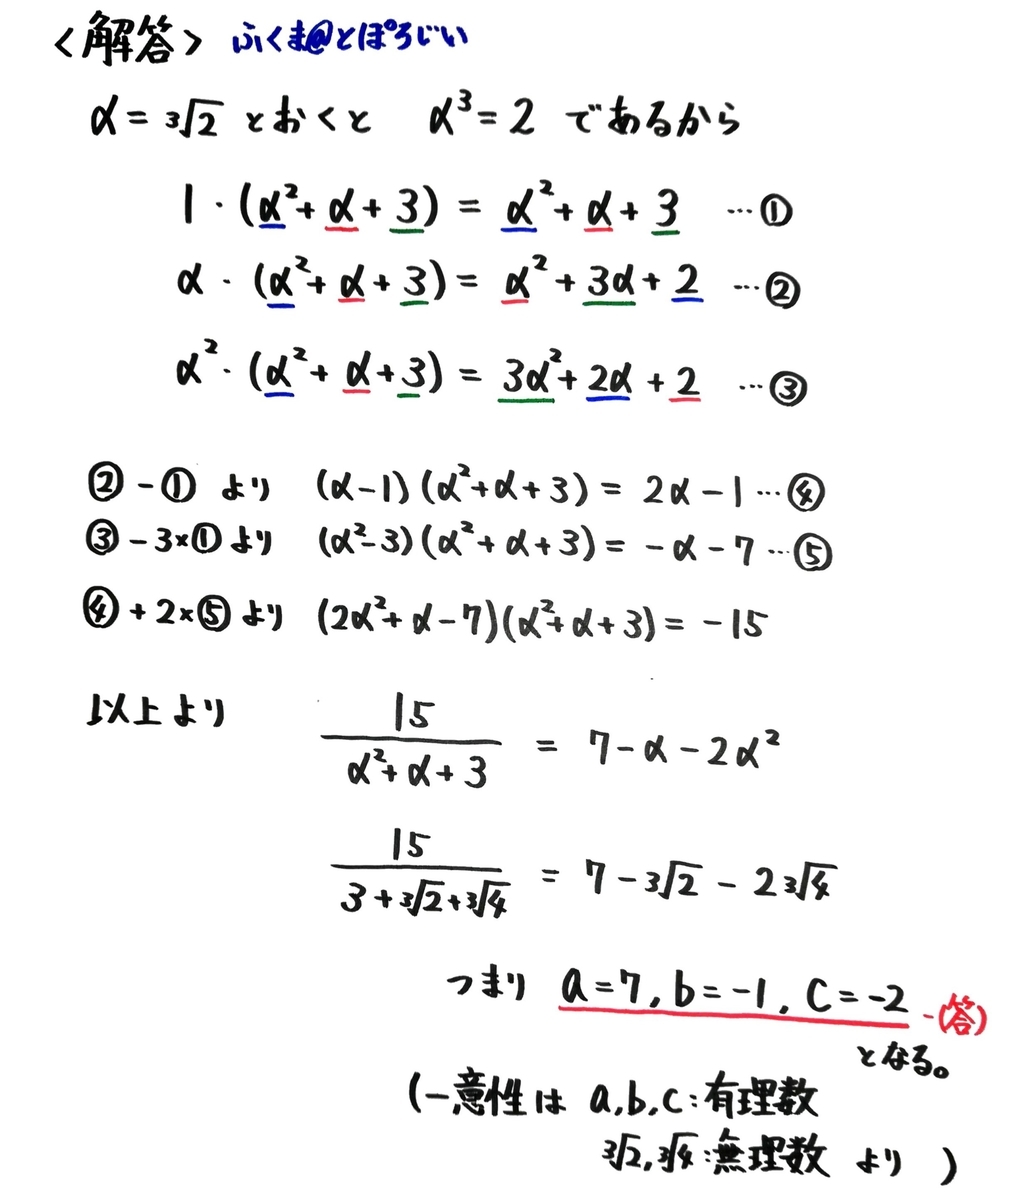 <解答> ふくま@とぽろじい
α = ³√2 とおくと α³ = 2 であるから
1・(α² + α + 3) = α² + α + 3 …①
α・(α² + α + 3) = α² + 3α + 2 …②
α²・(α² + α + 3) = 3α² + 2α + 2 …③
② - ① より (α-1)(α²+α+3) = 2α - 1 …④
③ - 3×① より (α²-3)(α²+α+3) = -α - 7 …⑤
④ + 2×⑤ より (2α²+α-7)(α²+α+3) = -15
以上より 15/(α²+α+3) = 7 - α - 2α²
15/(3+³√2+³√4) = 7 - ³√2 - 2³√4
つまり a=7, b=-1, c=-2 -(答)
となる。
(一意性は a,b,c:有理数
³√2, ³√4:無理数 より )